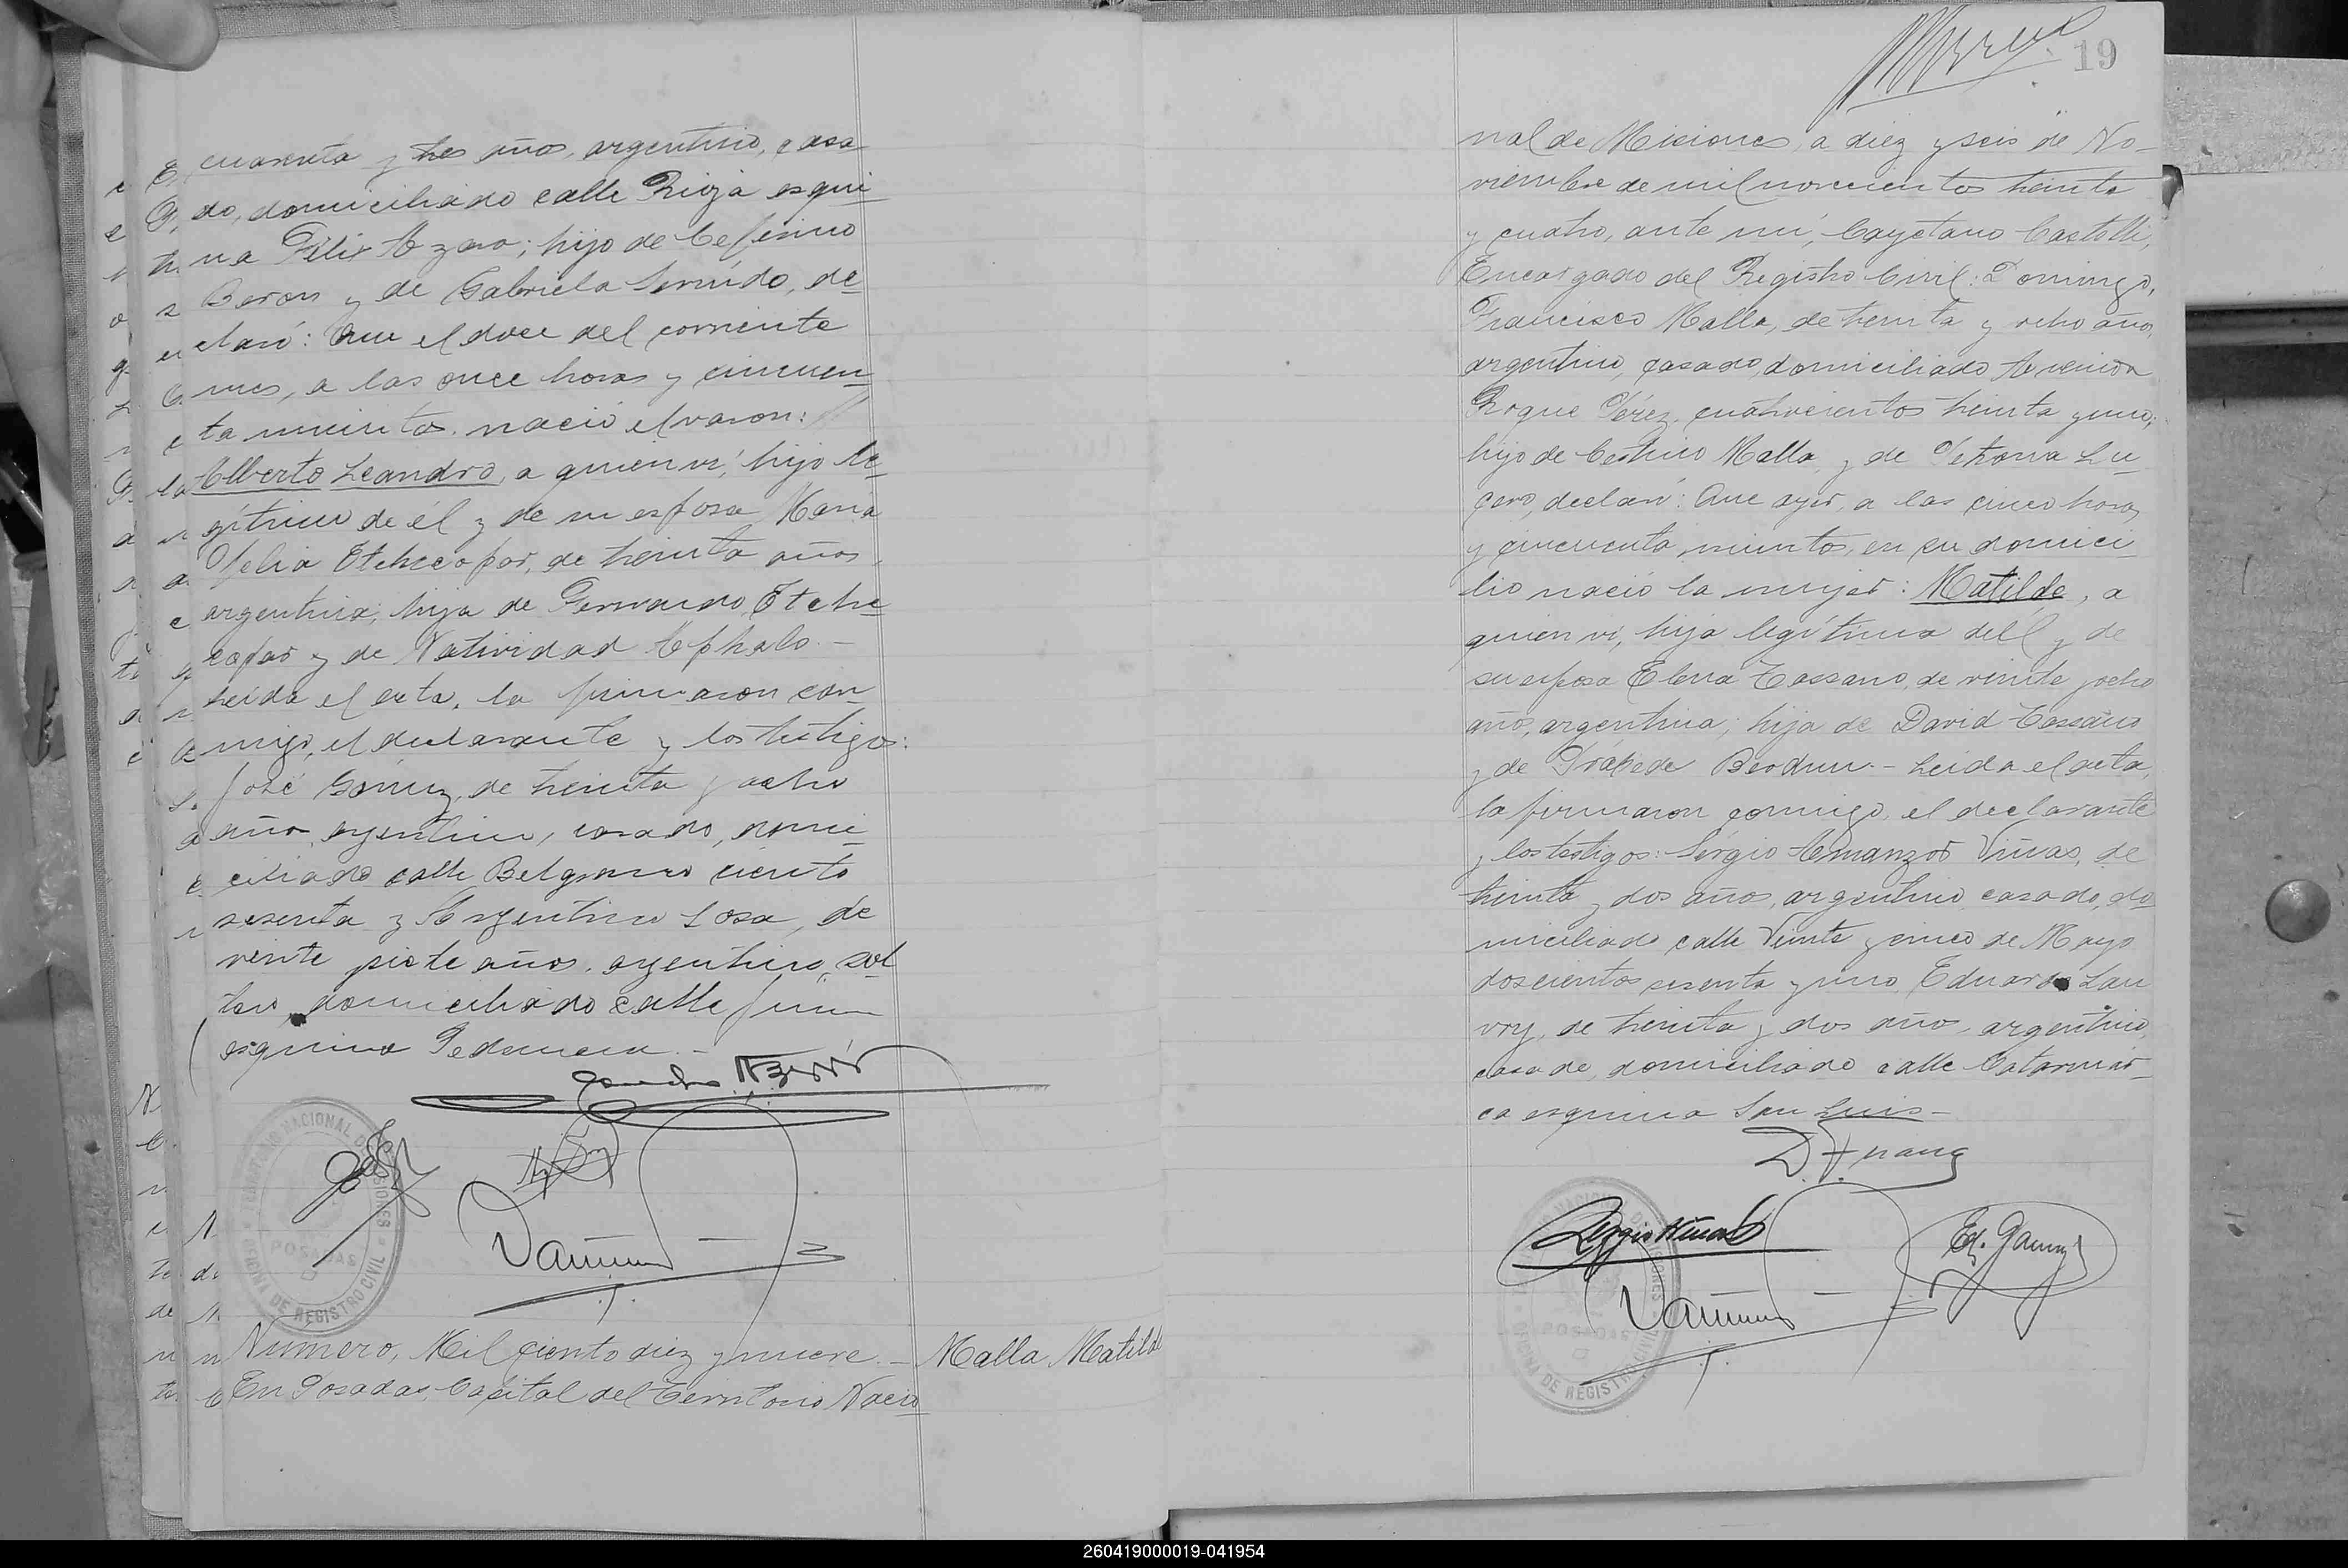 cuarenta y tres años, argentino, casa
do, domiciliado calle Rioja esqui
na Félix Azara; hijo de Ceferino
Beron y de Gabriela Semido, de
claró: Que el doce del corriente
mes, a las once horas y cincuen
ta minutos, nació el varon:
Alberto Leandro, a quien ví, hijo le
gítimo de él y de su esposa María
Etchecopar, de treinta años,
argentina; hija de Fernando Etche
copar y de Natividad
Leída el acta, la firmaron con
migo, el declarante y los testigos:
José Gómez, de treinta y ocho
años, argentino, casado, domi
ciliado calle Belgrano ciento
sesenta y Argentino Sosa, de
veinte y siete años, argentino, sol
tero, domiciliado calle Junin
esquina Pedernera.-
TERRITORIO NACIONAL DE MISIONES
POSADAS
OFICINA DE REGISTRO CIVIL
Numero, Mil ciento diez y nueve.- Malla Matilde
En Posadas, Capital del Territorio Nacio
19
nal de Misiones, a diez y seis de No-
viembre de mil novecientos treinta
y cuatro, ante mí, Cayetano Castelli,
Encargado del Registro Civil: Domingo,
Francisco Malla, de treinta y ocho años,
argentino, casado, domiciliado Avenida
Roque Pérez, cuatrocientos treinta y uno;
hijo de Malla y de Petrona Lu
cero, declaró: Que ayer, a las cinco horas
y cincuenta minutos, en su domici
lio nació la mujer: Matilde, a
quien ví, hija legítima del y de
su esposa Elena Cassano, de veinte y ocho
años, argentina; hija de David Cassano
y de Berdun.- Leída el acta,
la firmaron conmigo, el declarante
y los testigos: Sergio Almanzor Viñas, de
treinta y dos años, argentino, casado, do
miciliado calle Veinte y cinco de Mayo
doscientos sesenta y uno Eduardo Lau
vry, de treinta y dos años, argentino,
casado, domiciliado calle Catamar-
ca esquina San Luis-
Sergio Viñas
POSADAS
260419000019-041954